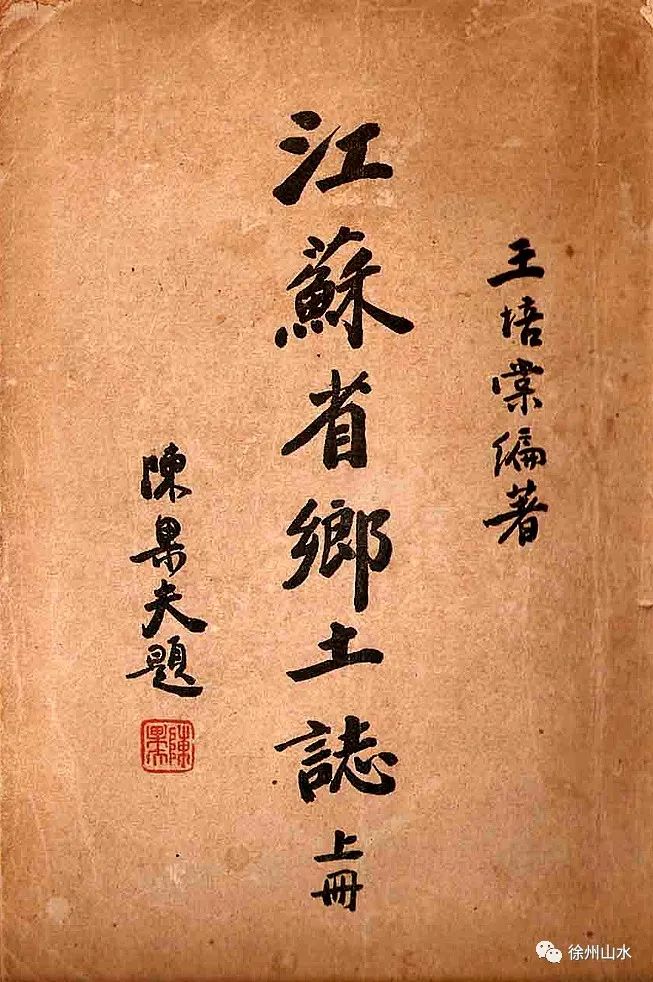 王培棠编著
江蘇省鄉土誌上冊
陳果夫題
陳果夫
徐州山水